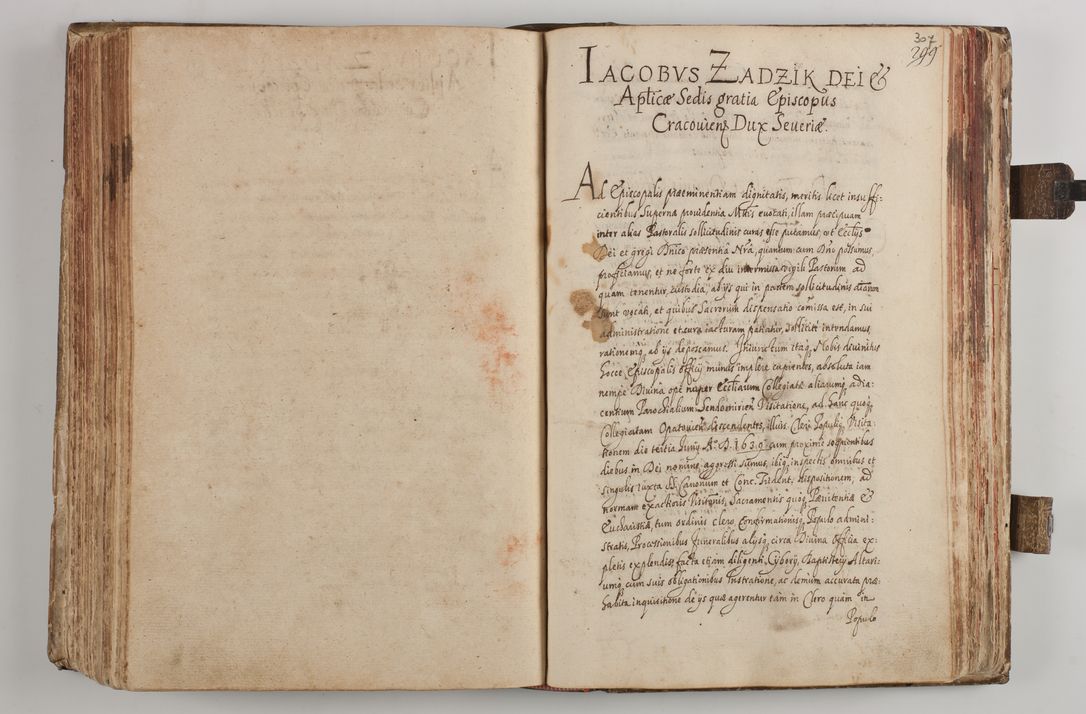 307
299
IACOBVS ZADZIK DEI &
Aplicæ Sedis gratia Episcopus
Cracouien Dux Seueriæ.
Ad Episcopalis præeminentiam dignitatis, meritis licet insuffi:
cientibus Superna prouidentia euocati, illam præcipuam
inter alias Pastoralis sollicitudinis curas esse putamus, vt Ecclys
Dei et gregi Dnico præsentia Nra, quantum cum Dno possumus,
proficiamus, et ne forte ex diu intermissa vigili Pastorum ad
quam tenentur, custodia, ab ijs qui in partem sollicitudinis
sunt vocati, et quibus Sacrorum dispensatio comissa est, in sui
administratione et cura iacturam patiatur, sollicite intendamus,
rationemq ab ijs deposcamus. Iniunctum itaq Nobis diuinitus
hocce Episcopalis officij munus implere cupientes, absoluta iam
nempe Diuina ope nuper Eccliarum Collegiatæ aliarumq adia:
centium Parochialium Sendomirien Visitatione, ad hanc quoq
Collegiatam Opatouien descendentes, illius Cleri Populiq Visita:
tionem die tertia Iunij Ao D. 1639 cum proxime sequentibus
diebus in Dei nomine aggressi sumus, ibiq inspectis omnibus et
singulis iuxta SS. Canonum et Conc. Trident. dispositionem, ad
normam exactioris Visitonis, Sacramentis quoq Pænitentiæ &
Eucharistiæ, tum ordinis Clero Confirmationisq Populo admini:
stratis, Processionibus funeralibus alijsq circa Diuina Officia ex:
pletis explendis, facta etjam diligenti Cyborij, Baptisterij Altari:
umq cum suis obligationibus lustratione, ac demum accurata præ:
habita inquisitione de ijs quæ agerentur tam in Clero quam in
Populo